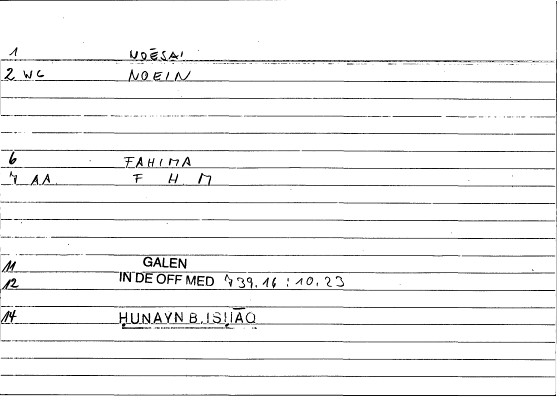 1 NOĒSAI
2 WC NOEIN
6 FAHIMA
7 AA. F H M
11 GALEN
12 IN DE OFF MED 739.16 : 10.23
14 ḤUNAYN B.ISḤĀQ